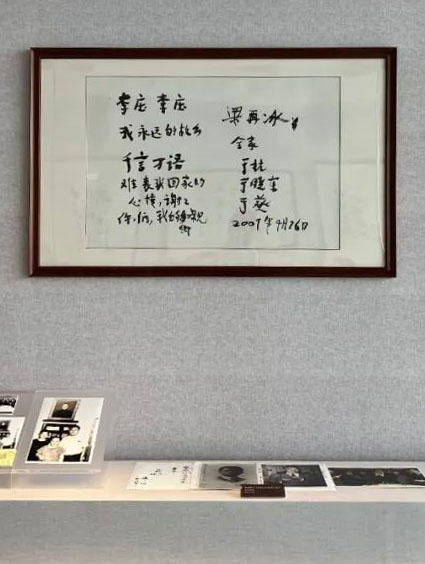 李庄 李庄
我永远的故乡
千言万语
难表我回家的
心情,谢谢
你们,我的乡亲
梁再冰
全家
于杭
于晓东
于葵
2007年4月26日